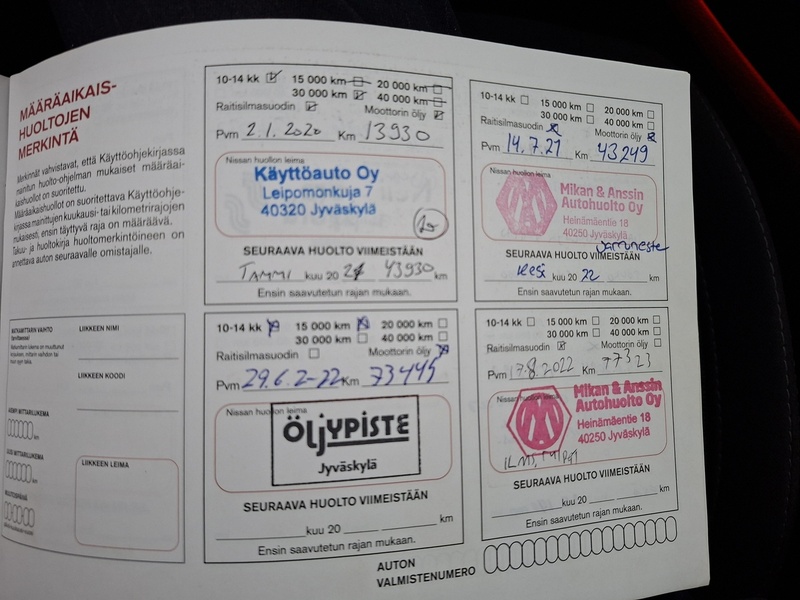 MÄÄRÄAIKAIS-
HUOLTOJEN
MERKINTÄ
Merkinnät vahvistavat, että Käyttöohjekirjassa
mainitun huolto-ohjelman mukaiset määräai-
kaishuollot on suoritettu.
Määräaikaishuollot on suoritettava Käyttöohje-
kirjassa mainittujen kuukausi- tai kilometrirajojen
mukaisesti, ensin täyttyvä raja on määräävä.
Takuu- ja huoltokirja huoltomerkintöineen on
annettava auton seuraavalle omistajalle.
MATKAMITTARIN VAIHTO
LIIKKEEN NIMI
LIIKKEEN KOODI
LIIKKEEN LEIMA
10-14 kk 15 000 km 20 000 km
30 000 km 40 000 km
Raitisilmasuodin Moottorin öljy
Pvm 2.1.2020 Km 13930
Nissan huollon leima
Käyttöauto Oy
Leipomonkuja 7
40320 Jyväskylä
SEURAAVA HUOLTO VIIMEISTÄÄN
TAMMI kuu 2021 43930 km
Ensin saavutetun rajan mukaan.
10-14 kk 15 000 km 20 000 km
30 000 km 40 000 km
Raitisilmasuodin Moottorin öljy
Pvm 14.7.21 Km 43249
Nissan huollon leima
Mikan & Anssin
Autohuolto Oy
Heinämäentie 18
40250 Jyväskylä
Jarruneste
SEURAAVA HUOLTO VIIMEISTÄÄN
Kesä kuu 20 22 km
Ensin saavutetun rajan mukaan.
10-14 kk 15 000 km 20 000 km
30 000 km 40 000 km
Raitisilmasuodin Moottorin öljy
Pvm 29.6.2-22 Km 73445
Nissan huollon leima
ÖLJYPISTE
Jyväskylä
SEURAAVA HUOLTO VIIMEISTÄÄN
kuu 20 km
Ensin saavutetun rajan mukaan.
10-14 kk 15 000 km 20 000 km
30 000 km 40 000 km
Raitisilmasuodin Moottorin öljy
Pvm 17.8.2022 Km 77323
Nissan huollon leima
Mikan & Anssin
Autohuolto Oy
Heinämäentie 18
40250 Jyväskylä
SEURAAVA HUOLTO VIIMEISTÄÄN
kuu 20 km
Ensin saavutetun rajan mukaan.
AUTON
VALMISTENUMERO